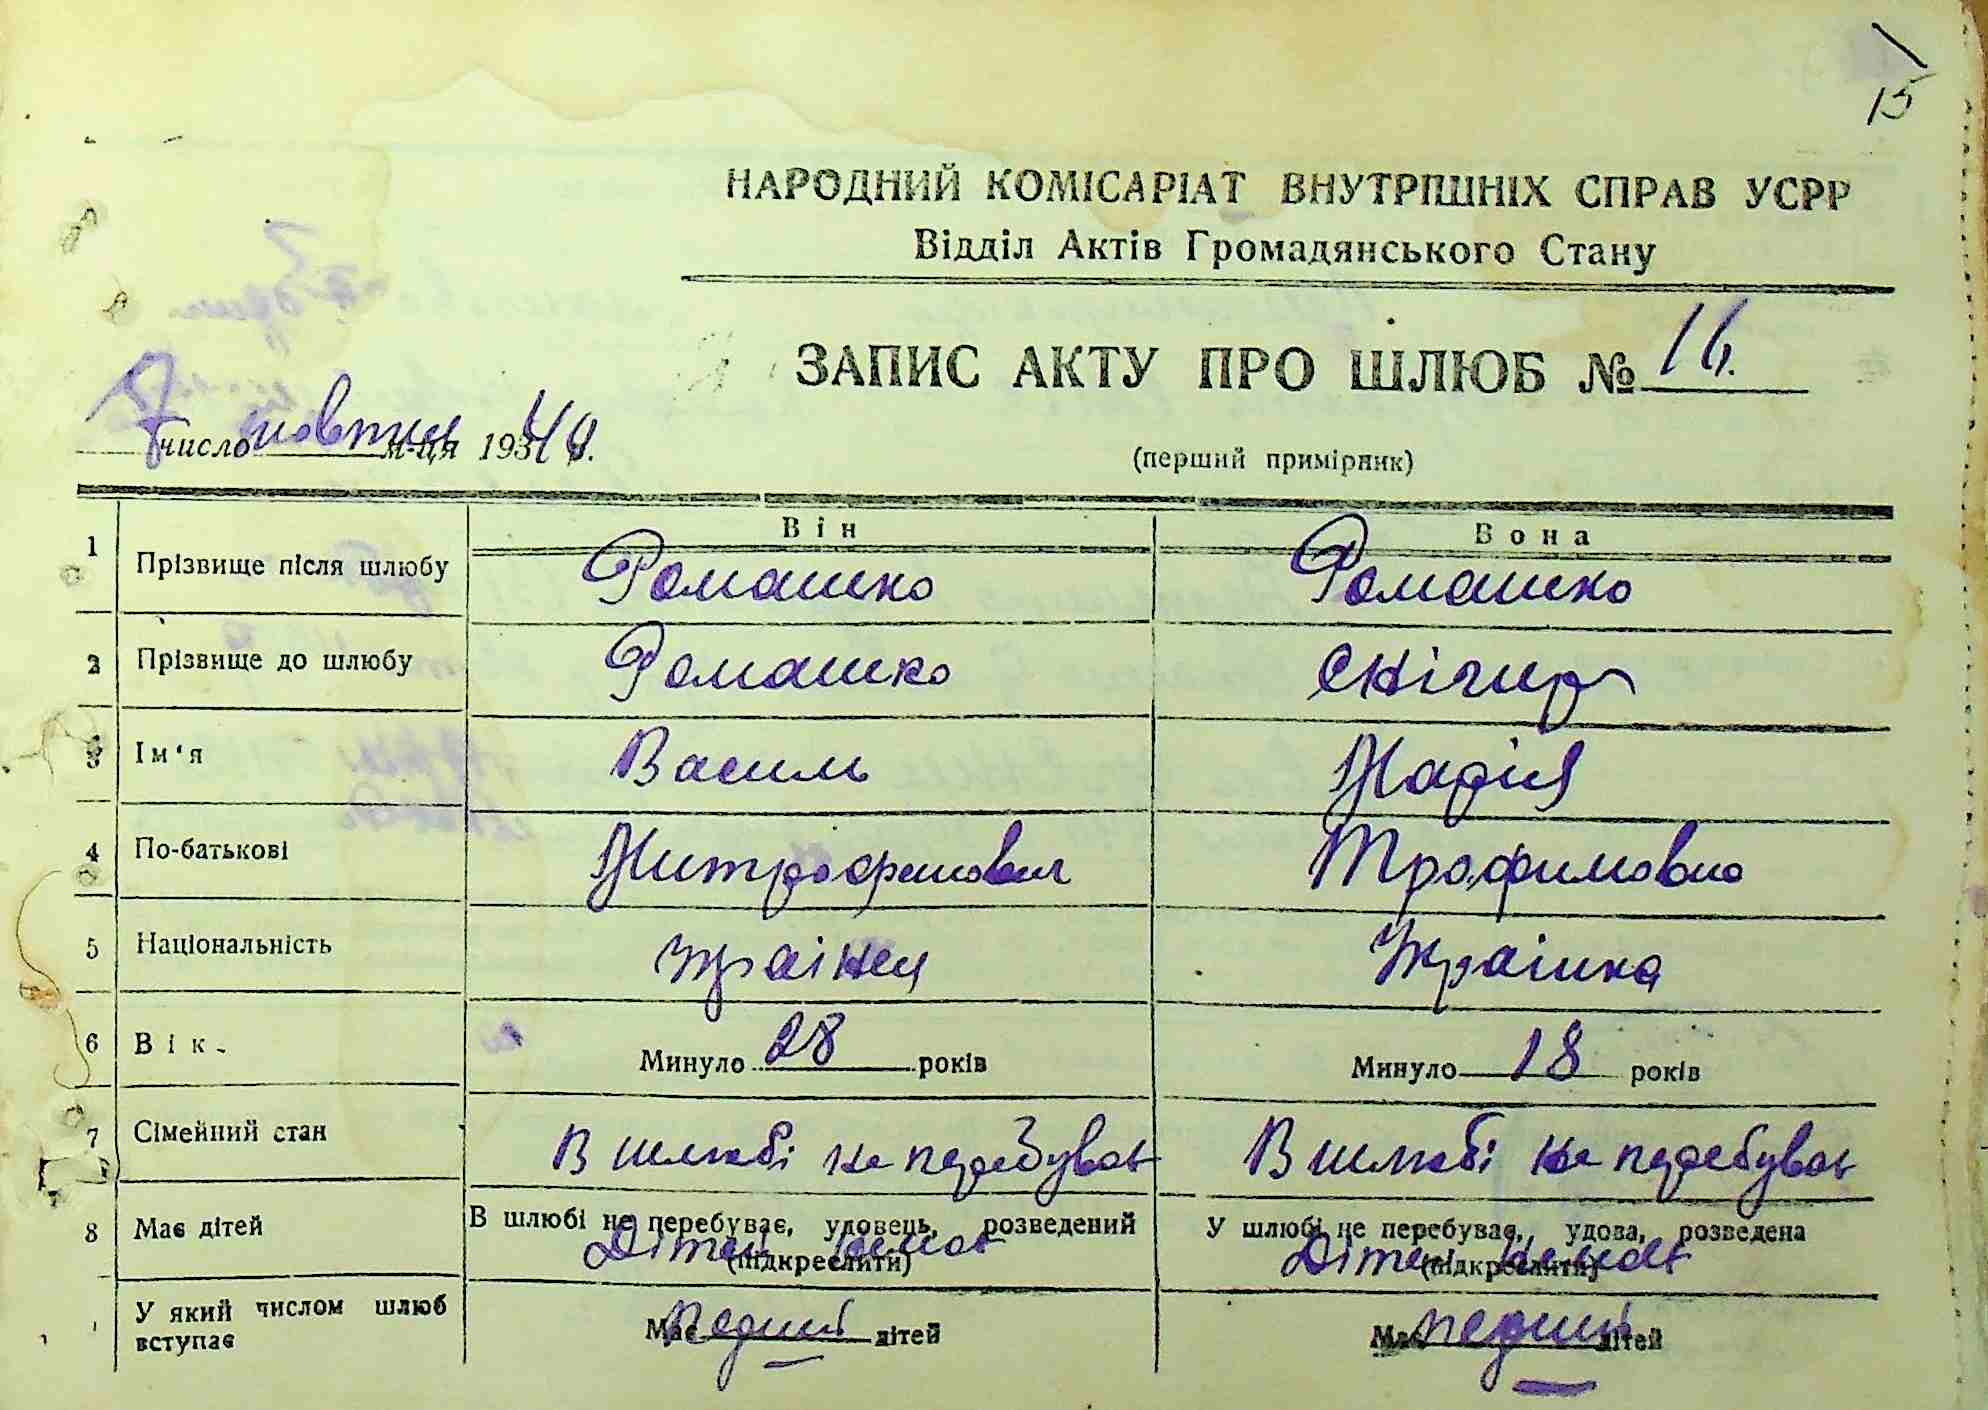 15
НАРОДНИЙ КОМІСАРІАТ ВНУТРІШНІХ СПРАВ УСРР
Відділ Актів Громадянського Стану
ЗАПИС АКТУ ПРО ШЛЮБ №
7 число м-ця 1940
(перший примірник)
Він Вона
1 Прізвище після шлюбу Ромашко Ромашко
2 Прізвище до шлюбу Ромашко Снігир
3 Ім'я Василь Надія
4 По-батькові Митрофанович Трофимовна
5 Національність Українец Українка
6 Вік. Минуло 28 років Минуло 18 років
7 Сімейний стан В шлюбі не перебував В шлюбі не перебував
8 Має дітей В шлюбі не перебуває, удовець, розведений У шлюбі не перебуває, удова, розведена
Дітей немає Дітей немає
(підкреслити) (підкреслити)
У який числом шлюб вступає Має перший дітей Має перший дітей